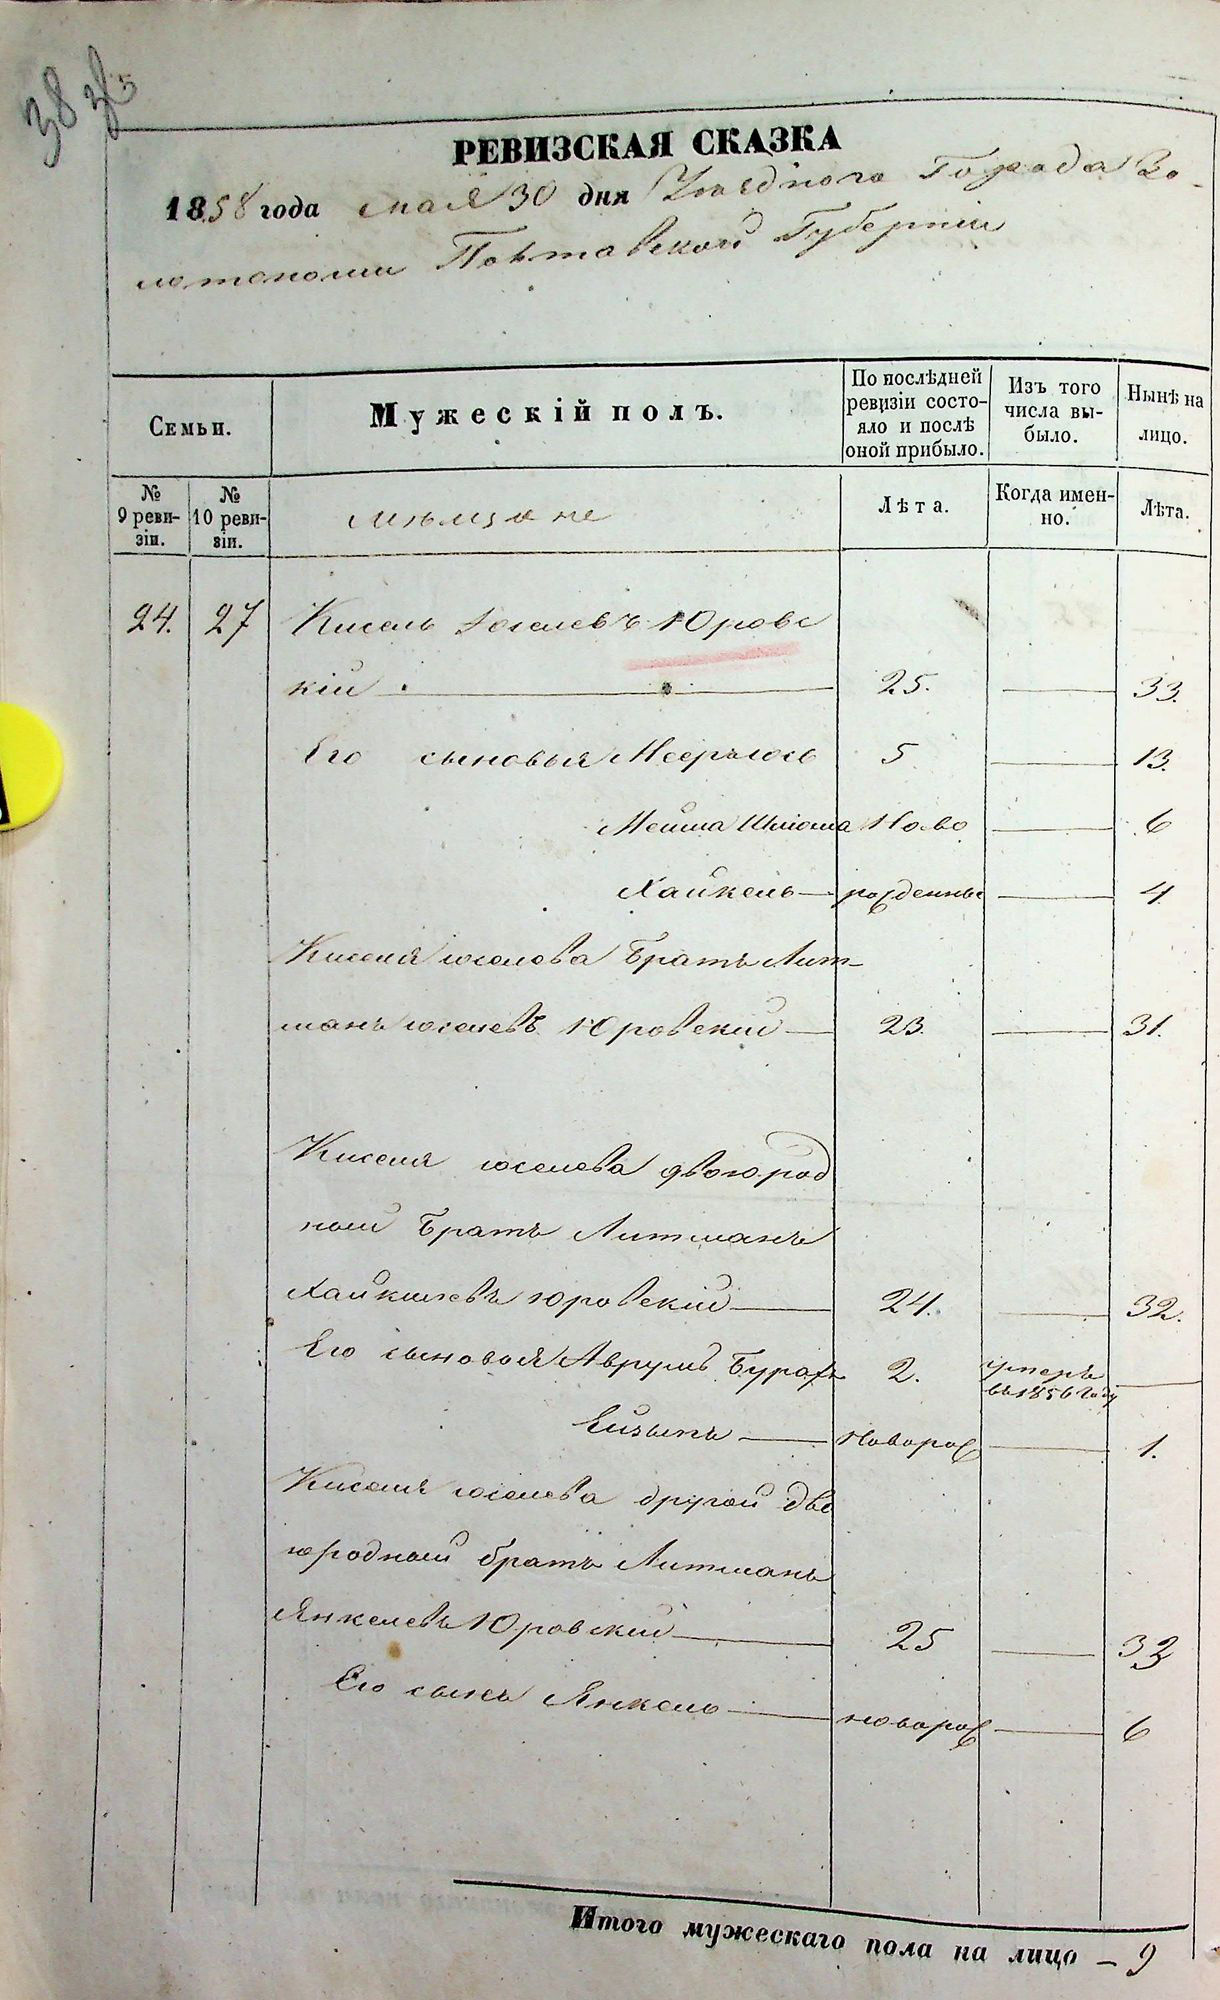 38
РЕВИЗСКАЯ СКАЗКА
1858 года мая 30 дня Уезднаго Города Зо-
лотоноши Полтавской Губернии
Семьи.
Мужескій полъ.
По послѣдней ревизіи состо-яло и послѣ оной прибыло.
Изъ того числа вы-было.
Нынѣ на лицо.
№ 9 реви-зіи.
№ 10 реви-зіи.
мѣщане
Лѣта.
Когда имен-но.
Лѣта.
24. 27 Кисель Іоселевъ Юровс
кій 25. 33.
Его сыновья 5 13.
Шлiома Ново 6
Хайкель рожденные 4
Киселя іоселева Братъ Лит-
манъ іоселевъ Юровскій 23. 31.
Киселя іоселева двоюрод
ный Братъ Литманъ
Хайкилевъ юровскій 24. 32.
Его сыновья Аврумъ Бурахъ 2. умеръ
въ 1856 году
новорож 1.
Киселя іоселева другой дво
юродный братъ Литманъ
Янкелевъ Юровскій 25 33
Его сынъ Янкель новорож 6
Итого мужескаго пола на лицо – 9